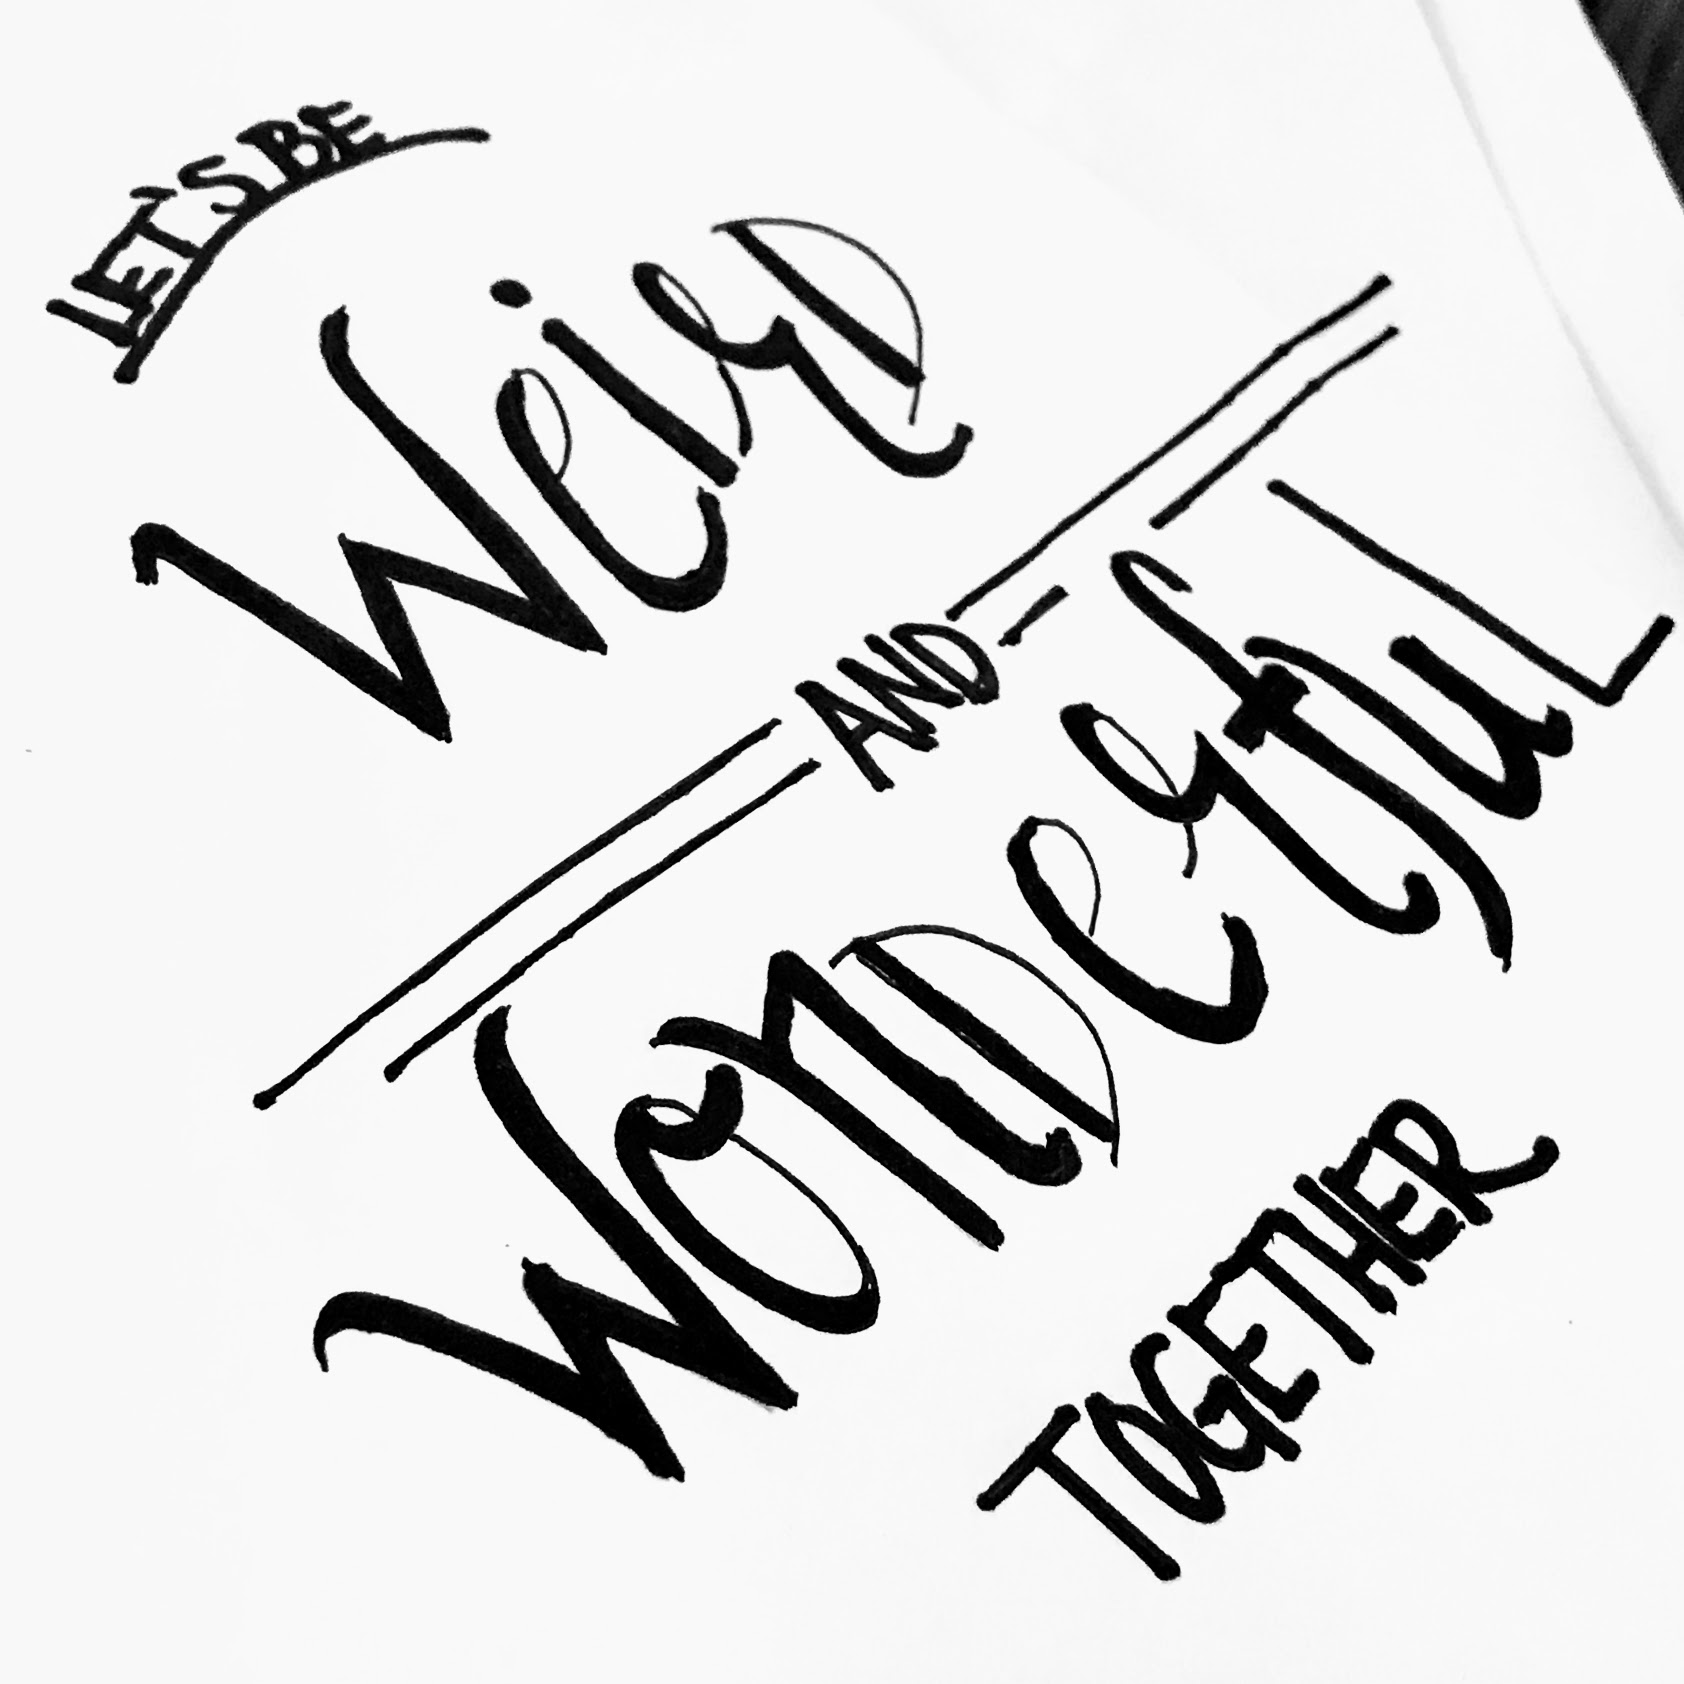 LET'S BE
WeirD
AND
WonDerfuL
TOGETHER